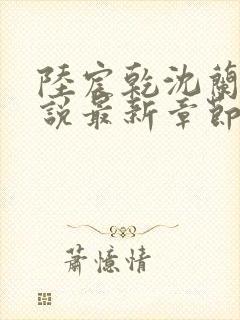 陸宸乾沈蘭
說最新章節
蕭憶情